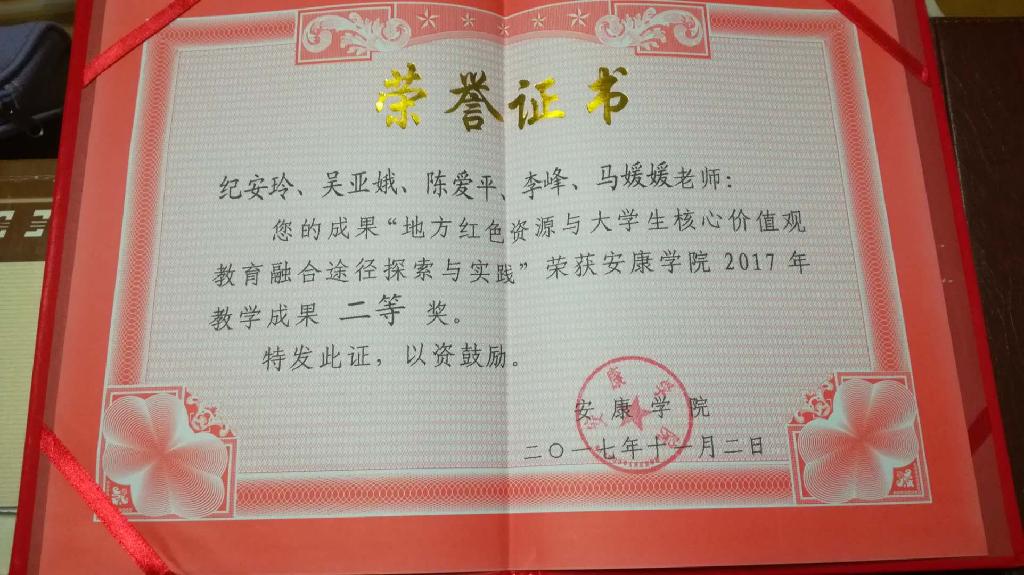 荣誉证书
纪安玲、吴亚娥、陈爱平、李峰、马媛媛老师：
您的成果“地方红色资源与大学生核心价值观
教育融合途径探索与实践”荣获安康学院 2017 年
教学成果 二等 奖。
特发此证，以资鼓励。
安康学院
二〇一七年十一月二日
安康学院